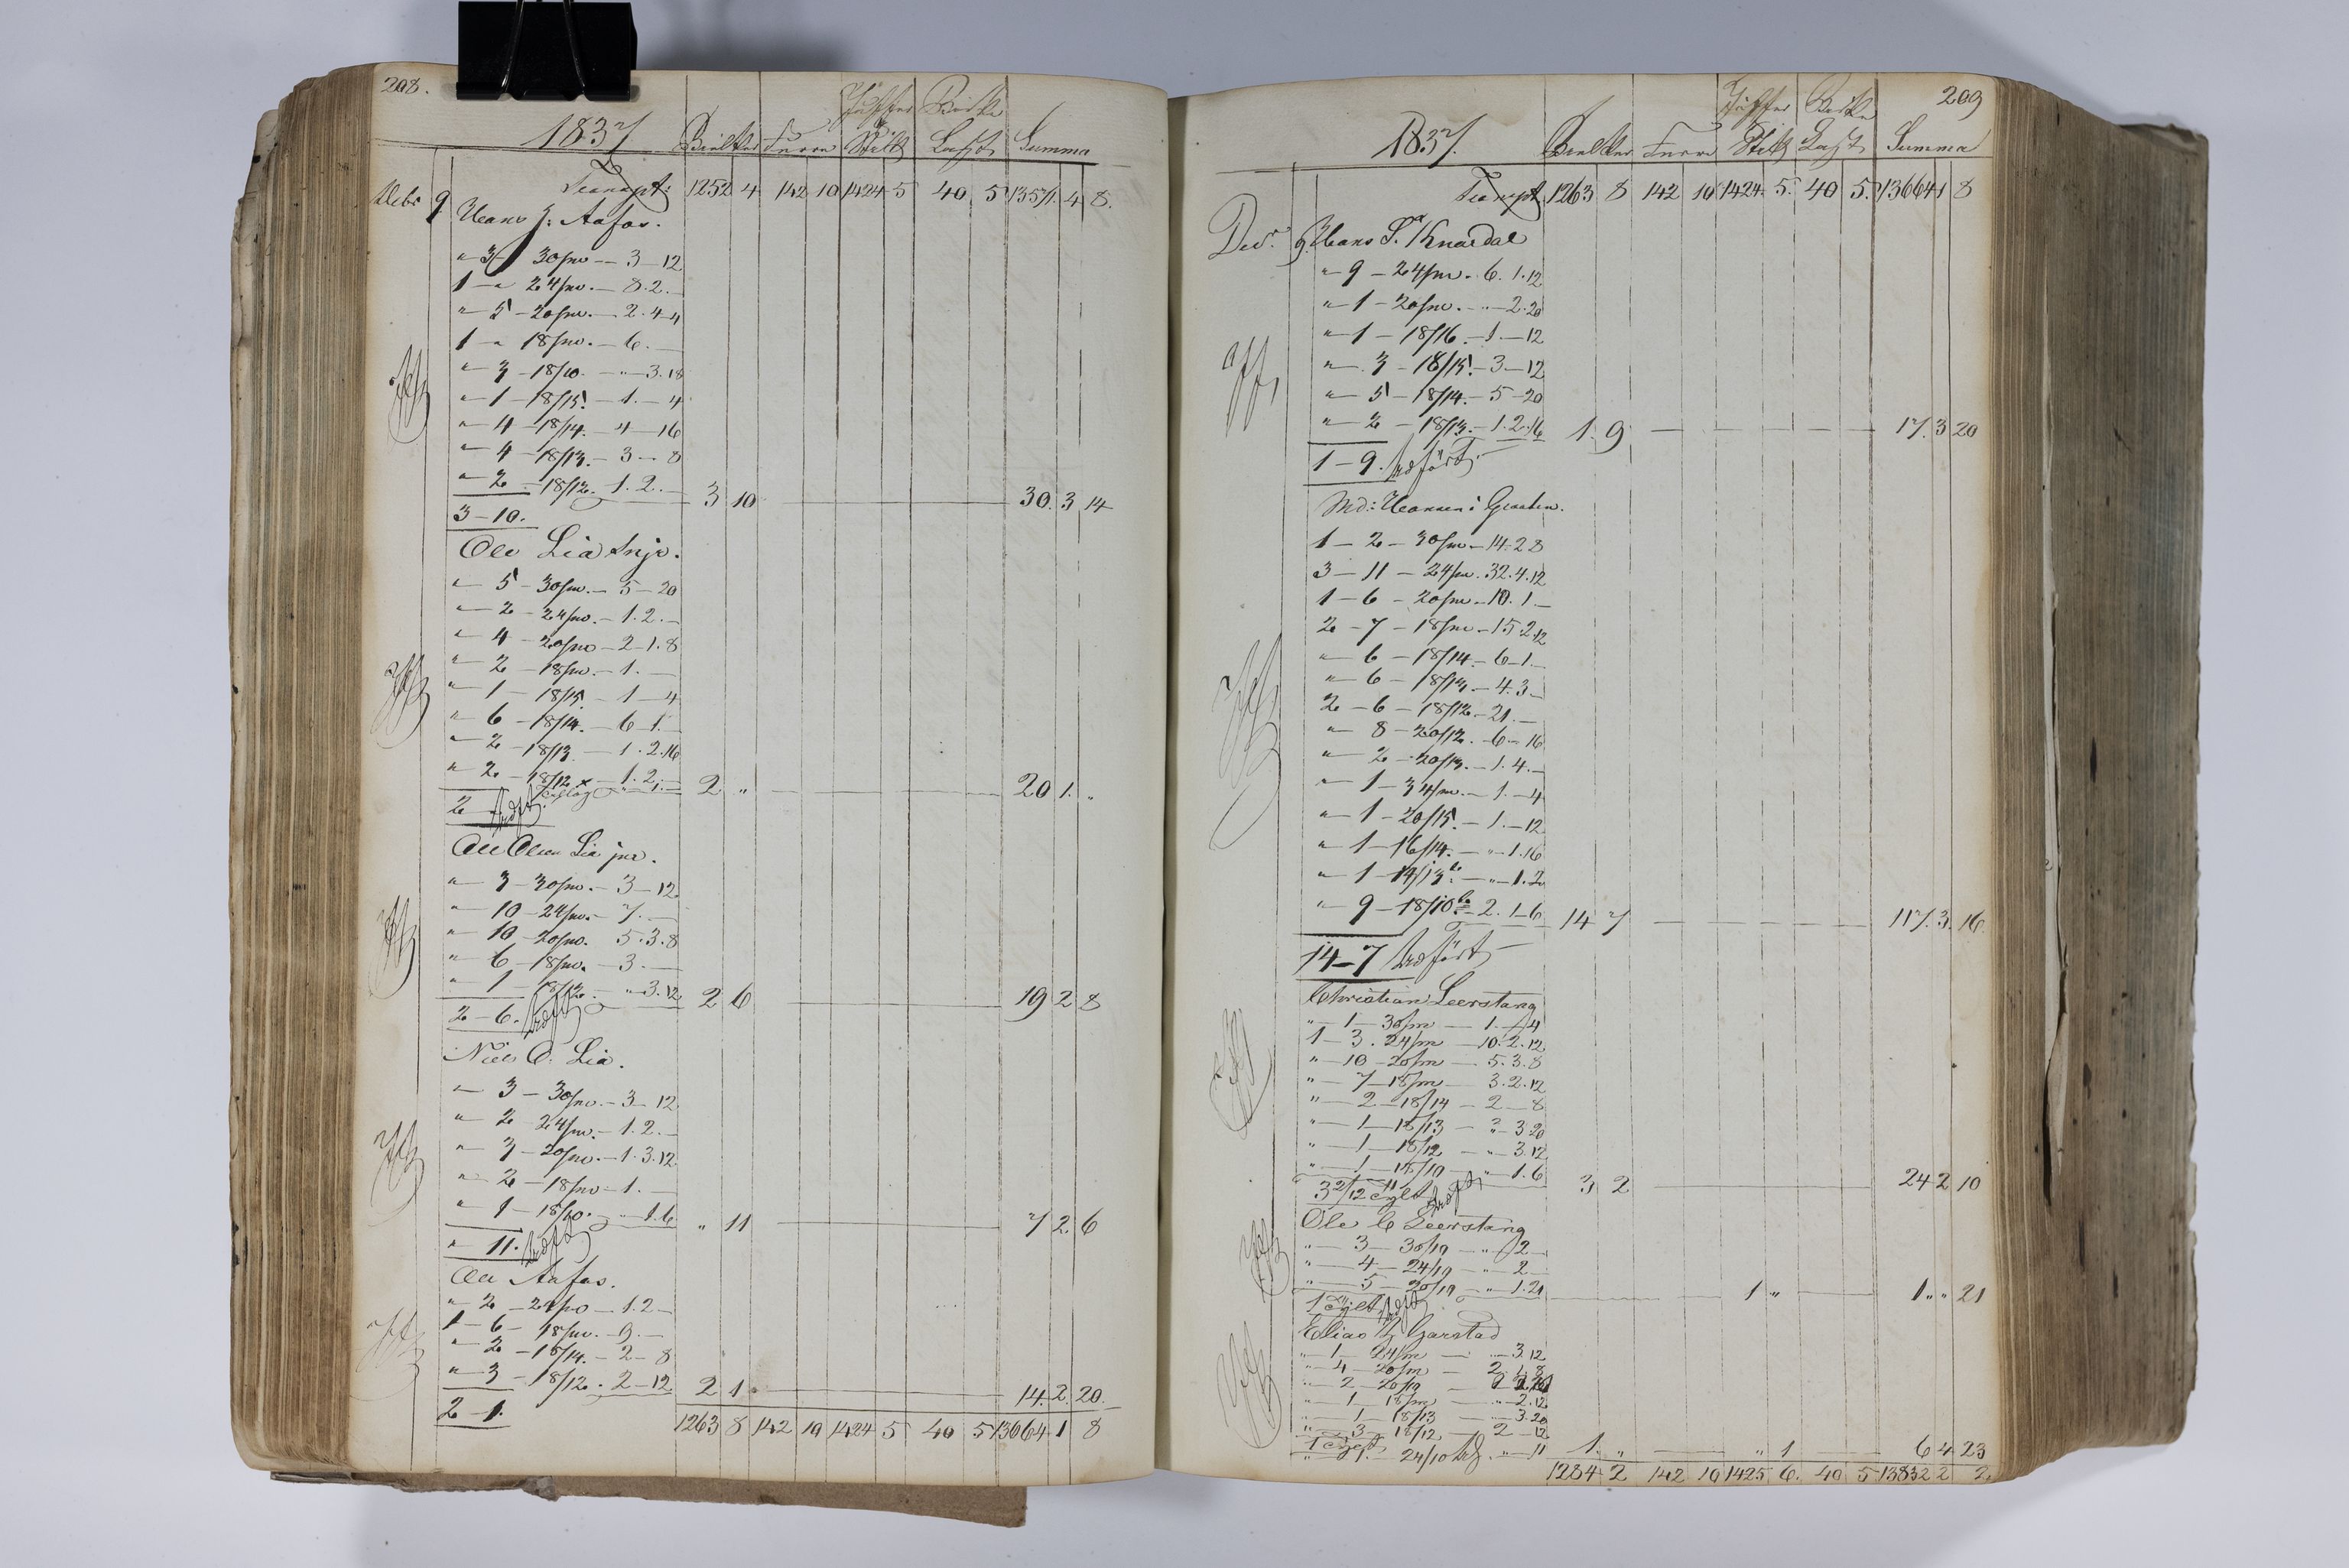 208.
1837 Bielker Furre Stilk Last Summa
Transpt: 1252 4 142 10 1424 5 40 5 13571. 4 8.
Debr 9 Hans J: Aafos.
" 3 30/m — 3 — 12
1 — " 24/m. — 8. 2. —
" 5 — 20/m. — 2. 4 — 4
1 — " 18/m. — 6. —
" 3 — 18/10. — " — 3. 18
" — 1 — 18/15. — 1. — 4
" — 4 — 18/14. — 4 — 16
" — 4 — 18/13. — 3 — 8
" — 2 — 18/12. 1. 2. — 3 10 30. 3 14
3 — 10.
Ole Lia
" — 5 — 30/m. — 5 — 20
" — 2 — 24/m. — 1. 2. —
" — 4 — 20/m — 2 — 1. 8
" — 2 — 18/m. — 1. —
" — 1 — 18/15. — 1 — 4
" — 6 — 18/14. — 6 1. —
" — 2 — 18/13 — 1. 2. 16
" — 2 — 18/12 — 1. 2. — 2 " 20 1. "
2
Ole Olsen Lia jnr.
" — 3 — 30/m. — 3 — 12
" — 10 — 24/m. — 7. —
" — 10 — 20/m. 5. 3. 8
" — 6 — 18/m. — 3. —
" — 1 — 18/12. — " 3. 12 2 6 19 2 8
2 — 6.
Niels O. Lia.
" — 3 — 30/m. — 3 — 12
" — 2 24/m. — 1. 2. —
" — 3 — 20/m. — 1. 3. 12
" — 2 — 18/m — 1. —
" — 1 — 18/10. " 1. 6 " 11 7 2 6
" 11.
Ole Aafos.
" — 2 — 24/m — 1. 2 —
1 — 6 — 18/m. — 9. —
" — 2 — 18/14. — 2 — 8
" — 3 — 18/12. 2 — 12 2 1. 14. 2. 20.
2 — 1.
1263 8 142 10 1424 5 40 5 13664 1 8
209
1837. Bielker Furre Stilk Last Summa
Transpt 1263 8 142 10 1424 5. 40 5. 13664 1 8
Decr. 9. Hans S. Knardal
" — 9 — 24/m. 6. 1. 12
" — 1 — 20/m. — " — 2. 20
" — 1 — 18/16. — 1. — 12
" — 3 — 18/15. — 3 — 12
" — 5 — 18/14. — 5 — 20
" — 2 — 18/13. — 1. 2. 16 1. 9 17. 3 20
1 — 9. Udført
Md: Hansen i Graaten.
1 — 2 — 30/m — 14. 2 8
3 — 11 — 24/m. 32. 4. 12
1 — 6 — 20/m — 10. 1. —
2 — 7 — 18/m — 15. 2. 12
" — 6 — 18/14. — 6 — 1. —
" — 6 — 18/13. — 4. 3 —
2 — 6 — 18/12. — 21. —
" — 8 — 20/12. — 6 — 16
" — 2 — 20/13. — 1. 4. —
" — 1 — 34/m. — 1. — 4
" — 1 — 20/15. — 1. — 12
" — 1 — 16/14. — " 1. 16
" — 1 — 14/13. — " — 1. 2
" — 9 — 18/10 — 2. 1 — 6 14 7 117. 3. 16.
14 — 7 Udført
Christian Leerstang
" — 1 — 30/m — 1. — 4
1 — 3. 24/m — 10. 2. 12
" — 10 — 20/m — 5. 3. 8
" — 7 — 18/m — 3. 2. 12
" — 2 — 18/14 — 2 — 8
" — 1 — 18/13 — " 3 20
" — 1 — 18/12 — " — 3. 12
" — 1 — 18/10 — " 1. 6 3 2 24 2 10
3 2/12
Ole C Leerstang
" — 3 — 30/10 — " 2 —
" — 4 — 24/10 — " 2 —
" — 5 — 20/10 — " 1. 21 1 " 1 " " 21
1
Elias Garstad
" — 1 — 24/m — " — 3. 12
" — 4 — 20/m — 2 1. 8
" — 2 — 20/10
" — 1 — 18/m — " — 2. 12
" — 1 — 18/13 — " — 3. 20
" — 3 — 18/12 — 2 — 12
" 1. — 24/10 " — 11 1. " " 1 6 4 23
1284 2 142 10 1425 6. 40 5 13832 2 2.